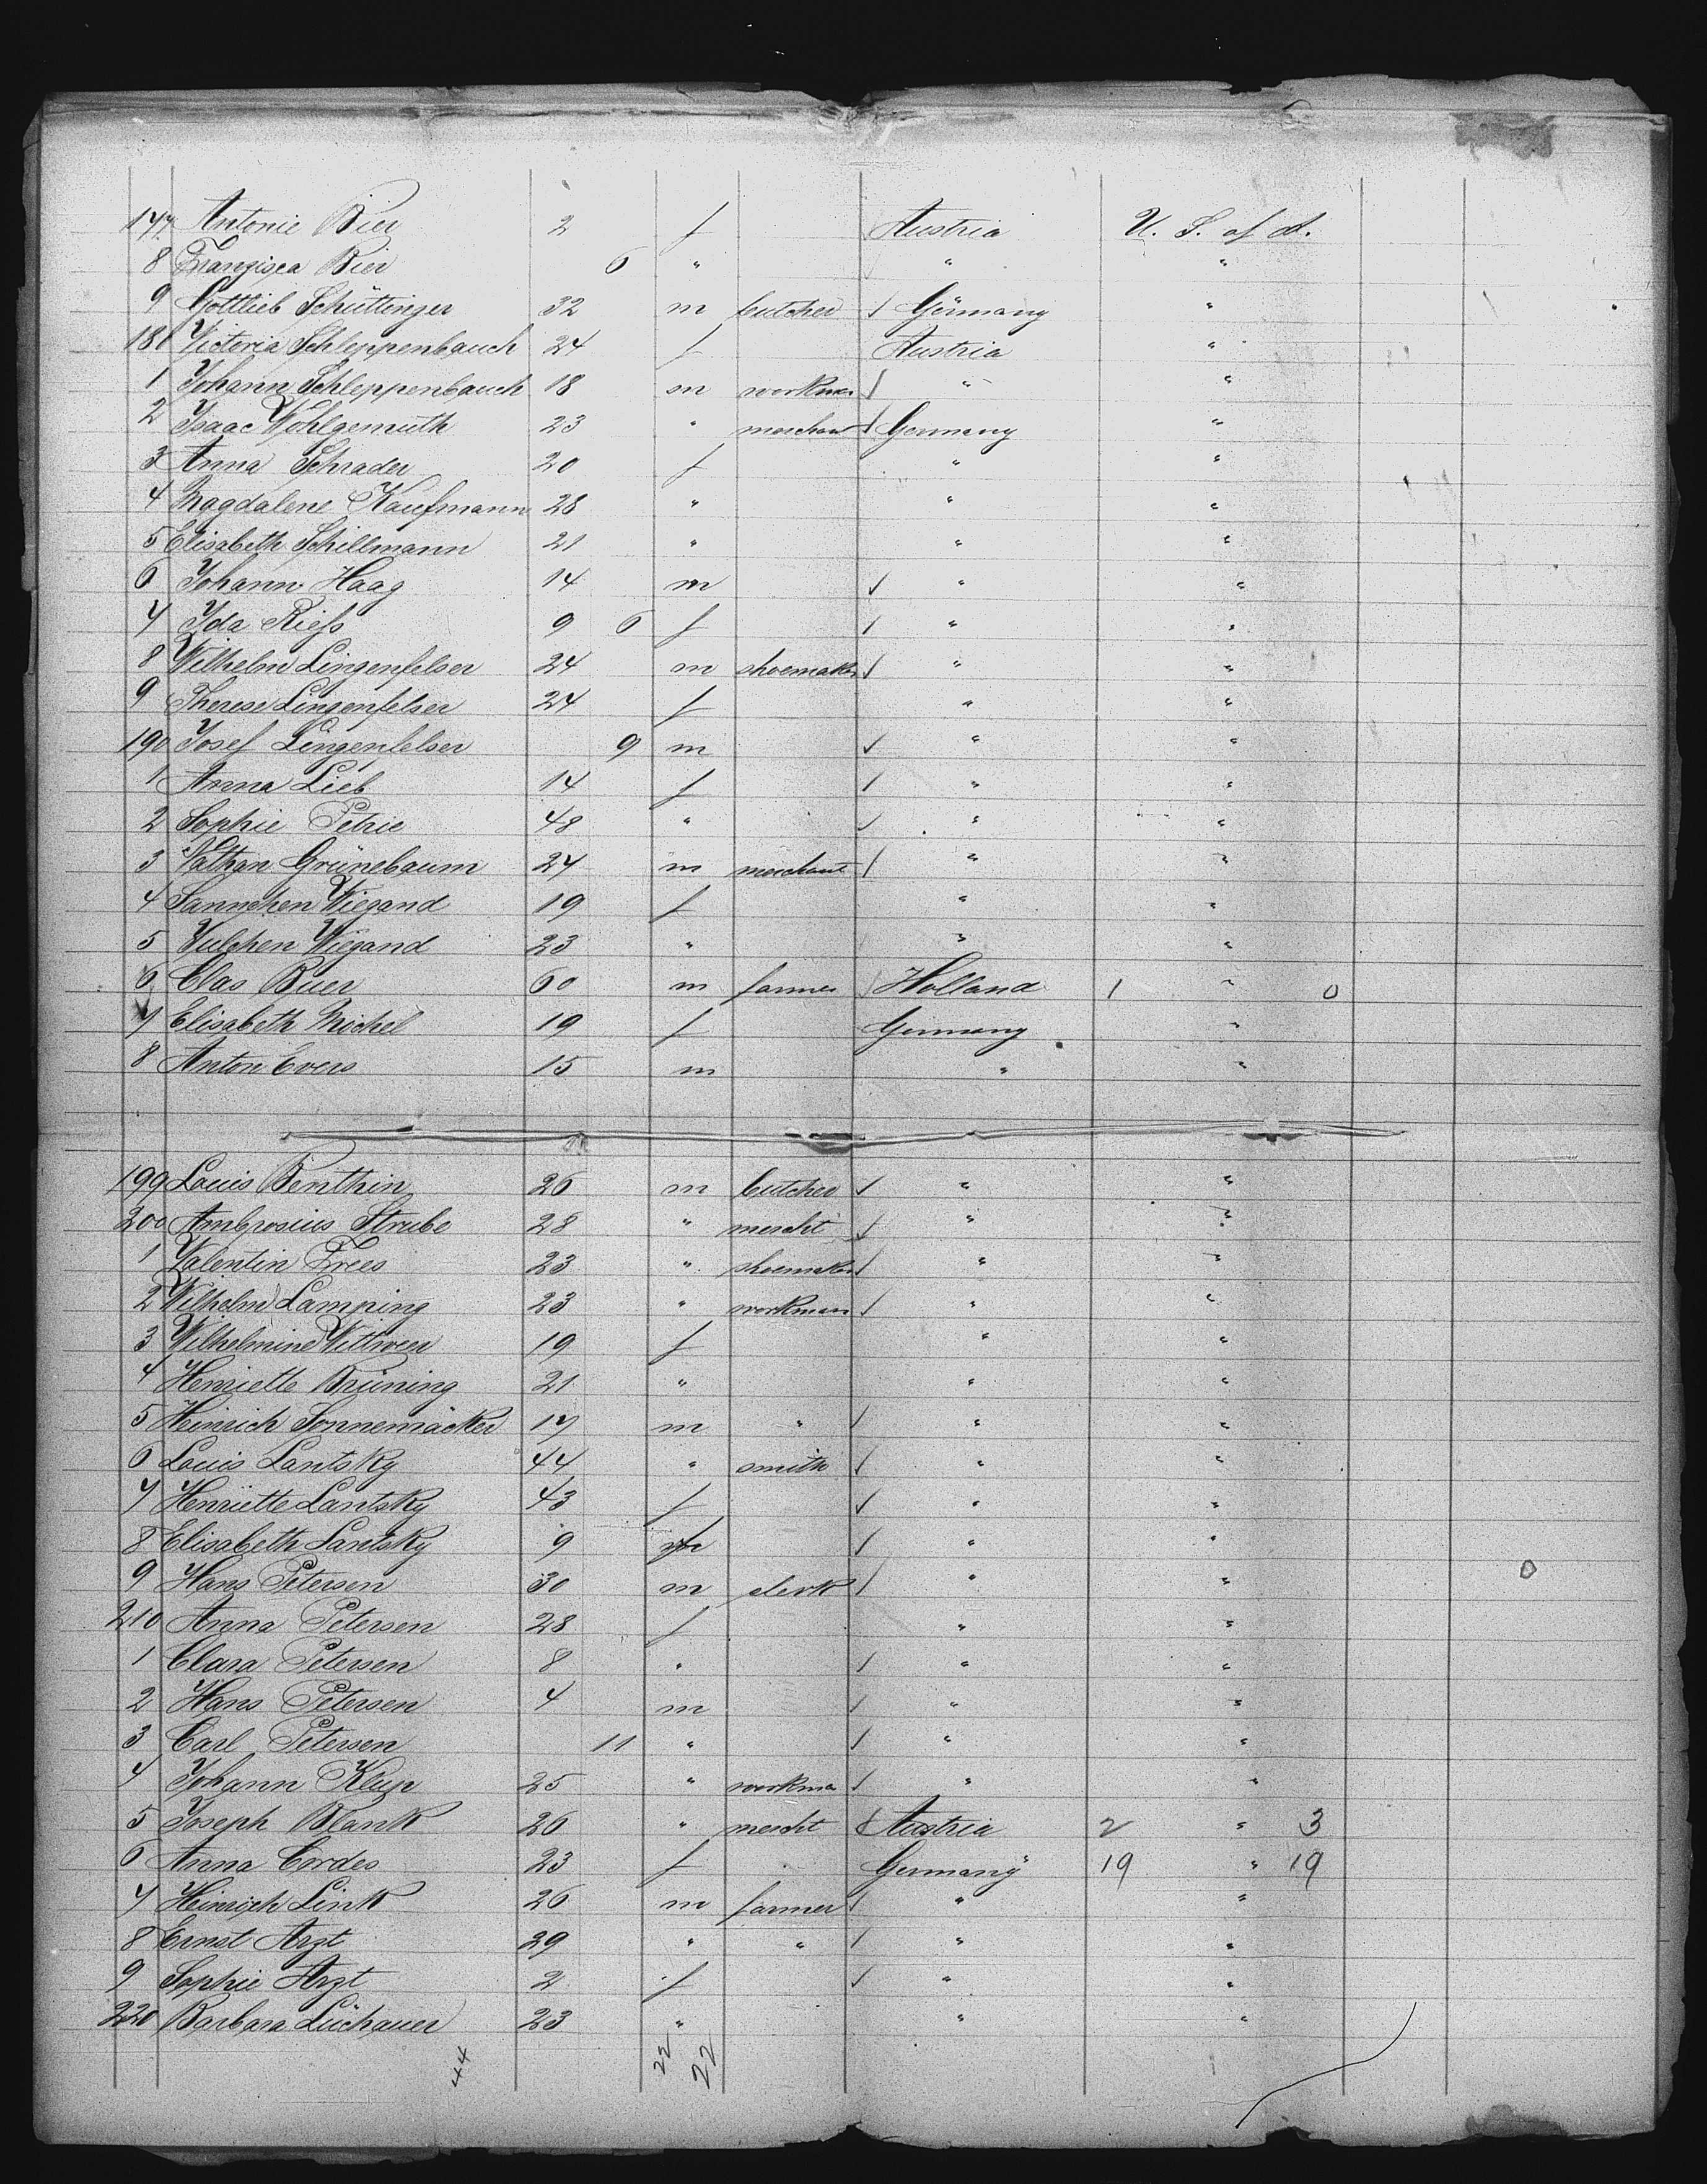 177 Antonie Bier 2 f Austria U. S. of A.
8 Franzisca Bier 6 " " "
9 Gottlieb Schüttinger 32 m butcher Germany "
180 Victoria Schleppenbauch 24 f Austria "
1 Johann Schleppenbauch 18 m workman " "
2 Isaac Wohlgemuth 23 " merchant Germany "
3 Anna Schrader 20 f " "
4 Magdalene Kaufmann 28 " " "
5 Elisabeth Schillmann 21 " " "
6 Johann Haag 14 m " "
7 Ida Riefs 9 6 f " "
8 Wilhelm Lingenfelser 24 m shoemaker " "
9 Therese Lingenfelser 24 f " "
190 Josef Lingenfelser 9 m " "
1 Anna Lieb 14 f " "
2 Sophie Petrie 48 " " "
3 Nathan Grünebaum 24 m merchant " "
4 Sannchen Wiegand 19 f " "
5 Julchen Wiegand 23 " " "
6 Clas Buer 60 m farmer Holland 1 " 0
7 Elisabeth Michel 19 f Germany "
8 Anton Evers 15 m " "
199 Louis Benthin 26 m butcher " "
200 Ambrosius Strube 28 " mercht " "
1 Valentin Frees 23 " shoemaker " "
2 Wilhelm Lamping 23 " workman " "
3 Wilhelmine 19 f " "
4 Henriette Brüning 21 " " "
5 Heinrich Sonnemäcker 17 m " " "
6 Louis Lantsky 44 " smith " "
7 Henriette Lantsky 43 f " "
8 Elisabeth Lantsky 9 f " "
9 Hans Petersen 30 m clerk " " 0
210 Anna Petersen 28 f " "
1 Clara Petersen 8 " " "
2 Hans Petersen 4 m " "
3 Carl Petersen 11 " " "
4 Johann 25 " workma " "
5 Joseph Blank 26 " mercht Austria 2 " 3
6 Anna Cordes 23 f Germany 19 " 19
7 Heinrich Link 26 m farmer " "
8 Ernst Arzt 29 " " " "
9 Sophie Arzt 2 f " "
220 Barbara Lüchauer 23 " " "
44 22 22